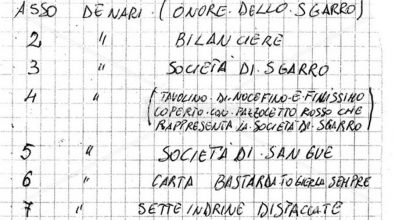 ASSO DENARI. (ONORE. DELLO. SGARRO)
2 " BILANCIERE
3 " SOCIETÀ. DI. SGARRO
4 " (TAVOLINO. DI. NOCE FINO. E. FINISSIMO
COPERTO. CON. FAZZOLETTO ROSSO CHE
RAPPRESENTA LA SOCIETÀ DI. SGARRO)
5 " SOCIETÀ DI. SANGUE
6 " CARTA BASTARDA TOGLIERLA SEMPRE
7 " SETTE INDRINE DISTACCATE